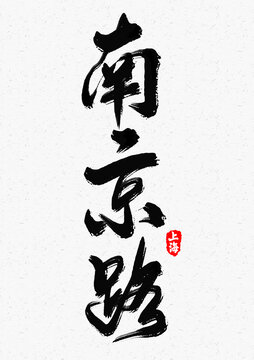 南京路
上海